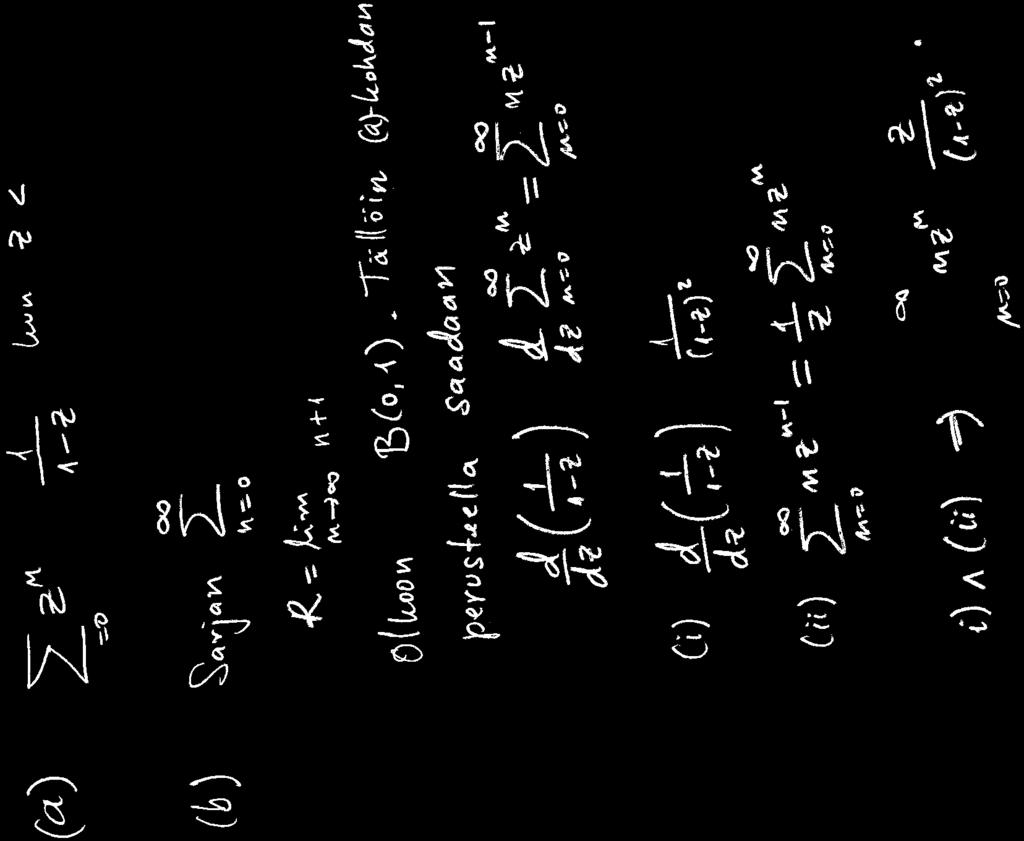 (a) ∑ =0 zⁿ 1/(1-z) kun z <
(b) Sarjan ∑_{n=0}^{∞}
R = lim_{n→∞} n+1
Olkoon B(0,1). Tällöin (a)-kohdan
perusteella saadaan
d/dz (1/(1-z)) d/dz ∑_{n=0}^{∞} zⁿ = ∑_{n=0}^{∞} nz^{n-1}
(i) d/dz (1/(1-z)) 1/(1-z)²
(ii) ∑_{n=0}^{∞} nz^{n-1} = 1/z ∑_{n=0}^{∞} nzⁿ
i) ∧ (ii) ⇒ ∞ n=0 nzⁿ z/(1-z)².